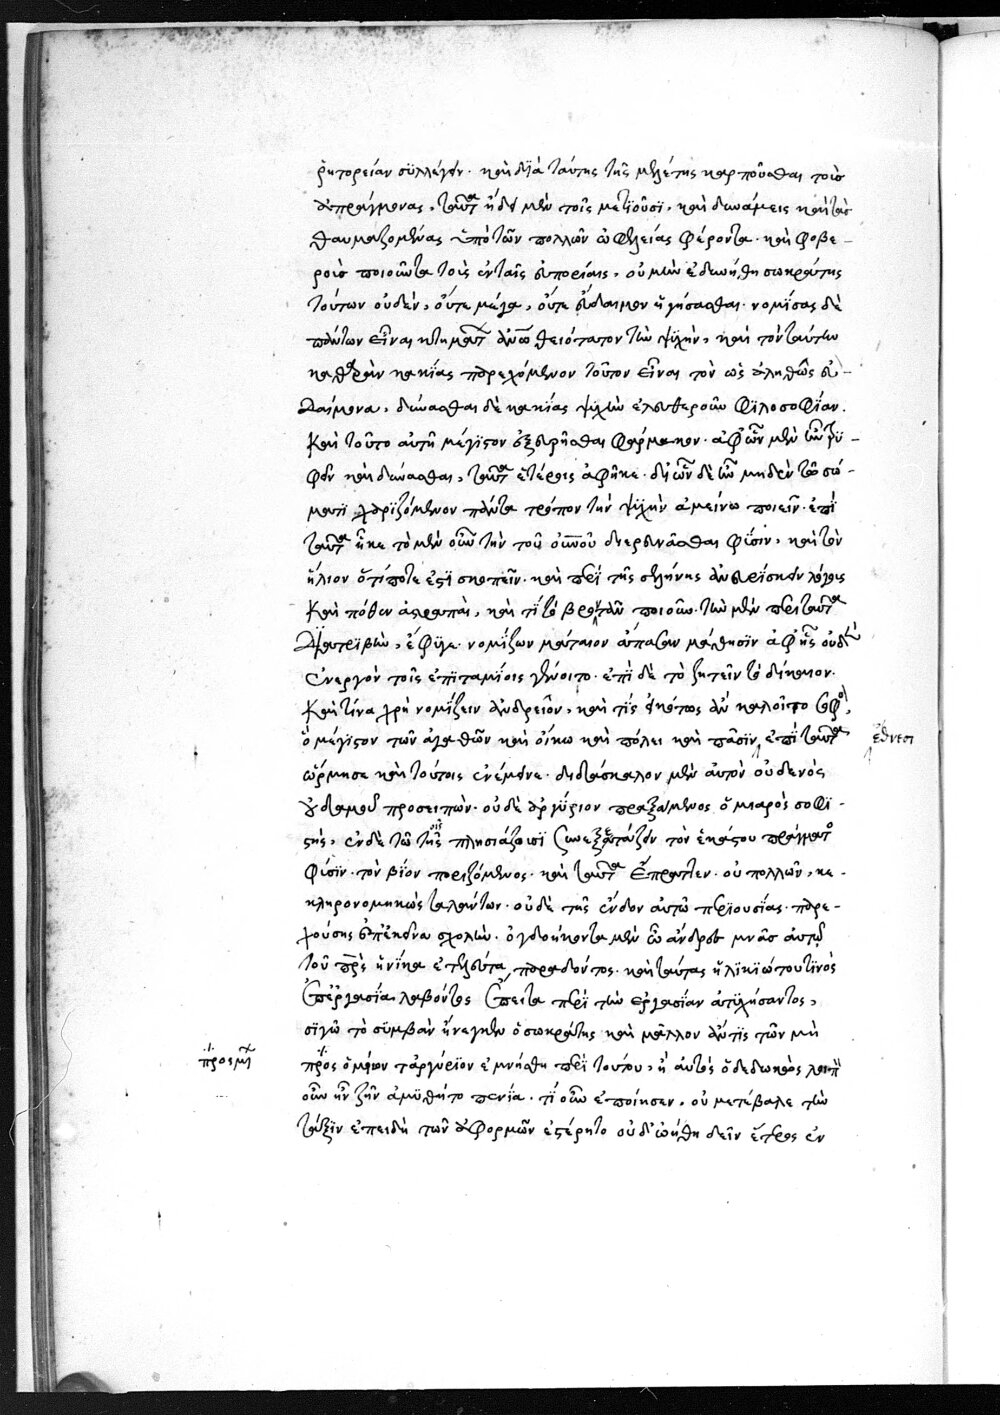 ῥητορείαν συλλέγειν. καὶ διὰ ταύτης τῆς μελέτης καρποῦσθαι τοὺς
ἀπράγμονας. ταῦτα ἡδὺ μὲν τοῖς μετιοῦσι, καὶ δυνάμεις καὶ τὰς
θαυμαζομένας ὑπὸ τῶν πολλῶν ὠφελείας φέροντα. καὶ φοβε-
ροὺς ποιοῦντα τοὺς ἐν ταῖς εὐπορίαις, οὐ μὴν ἐδυνήθη σωκράτης
τούτων οὐδὲν, οὔτε μέγα, οὔτε εὔδαιμον ἡγήσασθαι. νομίσας δὲ
πάντων εἶναι κτημάτων ἀνθρώπω θειότατον τὴν ψυχὴν, καὶ τὸν ταύτην
καθαρὰν κακίας παρεχόμενον τοῦτον εἶναι τὸν ὡς ἀληθῶς εὐ-
δαίμονα. δύνασθαι δὲ κακίας ψυχὴν ἐλευθεροῦν φιλοσοφίαν.
καὶ τοῦτο αὐτῆ μέγιστον ἐξευρῆσθαι φάρμακον. ἀφ' ὧν μὲν ἦν τύ-
φειν καὶ δύνασθαι, ταῦτα ἑτέροις ἀφῆκε. δι' ὧν δὲ ἦν μηδὲν τῶ σώ-
ματι χαριζόμενον πάντα τρόπον τὴν ψυχὴν ἀμείνω ποιεῖν. ἐπὶ
ταῦτα ἧκε τὸ μὲν οὖν τὴν τοῦ οὐρανοῦ διερευνᾶσθαι φύσιν, καὶ τὸν
ἥλιον ὅ τί ποτέ ἐστι σκοπεῖν. καὶ περὶ τῆς σελήνης ἀνευρίσκειν λόγους
καὶ πόθεν ἀστραπαὶ, καὶ τί τὸ βροντᾶν ποιοῦν. τὴν μὲν περὶ ταῦτα
διατριβὴν, ἔφυγε. νομίζων μάταιον ἅπασαν μάθησιν ἀφ' ἧς οὐδὲν
ἐνεργὸν τοῖς ἐπισταμένοις γένοιτο. ἐπὶ δὲ τὸ ζητεῖν τὸ δίκαιον.
καὶ τίνα χρὴ νομίζειν ἀνδρεῖον, καὶ τίς εἰκότως ἂν καλοῖτο σοφὸς,
ὃ μέγιστον τῶν ἀγαθῶν καὶ οἴκω καὶ πόλει καὶ πᾶσιν, ἐπὶ ταῦτα ἔθνεσι
ὥρμησε καὶ τούτοις ἐνέμεινε. διδάσκαλον μὲν αὐτὸν οὐδενὸς
οὐδαμοῦ προσειπών. οὐδὲ ἀργύριον πραξάμενος ὁ μιαρὸς σοφι-
στής, ἐν δὲ τῶ τοῖς πλησιάζουσι συνεξετάζειν τὸν ἑκάστου πράγματος
φύσιν. τὸν βίον ποριζόμενος. καὶ ταῦτα ἔπραττεν. οὐ πολλῶν, κε-
κληρονομηκὼς ταλάντων. οὐδὲ τῆς ἔνδον αὐτῶ περιουσίας. παρε-
χούσης ἐπέκεινα σχολήν. ὀγδοήκοντα μὲν ὦ ἄνδρες μνᾶς αὐτῶ
τοῦ πατρὸς ἡνίκα ἐτελεύτα, παραδόντος. καὶ ταύτας ἡλικιώτου τινὸς
ἐπ' ἐργασία λαβόντος ἔπειτα περὶ τὴν ἐργασίαν ἀτυχήσαντος,
σιγῶ τὸ συμβὰν ἤνεγκεν ὁ σωκράτης καὶ μᾶλλον ἄν τις τῶν μὴ
πρὸς ὃ μένον τἀργύριον ἐμνήσθη περὶ τούτου, ἢ αὐτὸς ὁ δεδωκὼς λοιπὸν
οὖν ἦν ζῆν ἀμυθήτω πενία. τί οὖν ἐποίησεν, οὐ μετέβαλε τὴν
τάξιν ἐπειδὴ τῶν ἀφορμῶν ἐστέρητο οὐδ' ὠήθη δεῖν ἕτερος ἐν
πρὸς μὲν